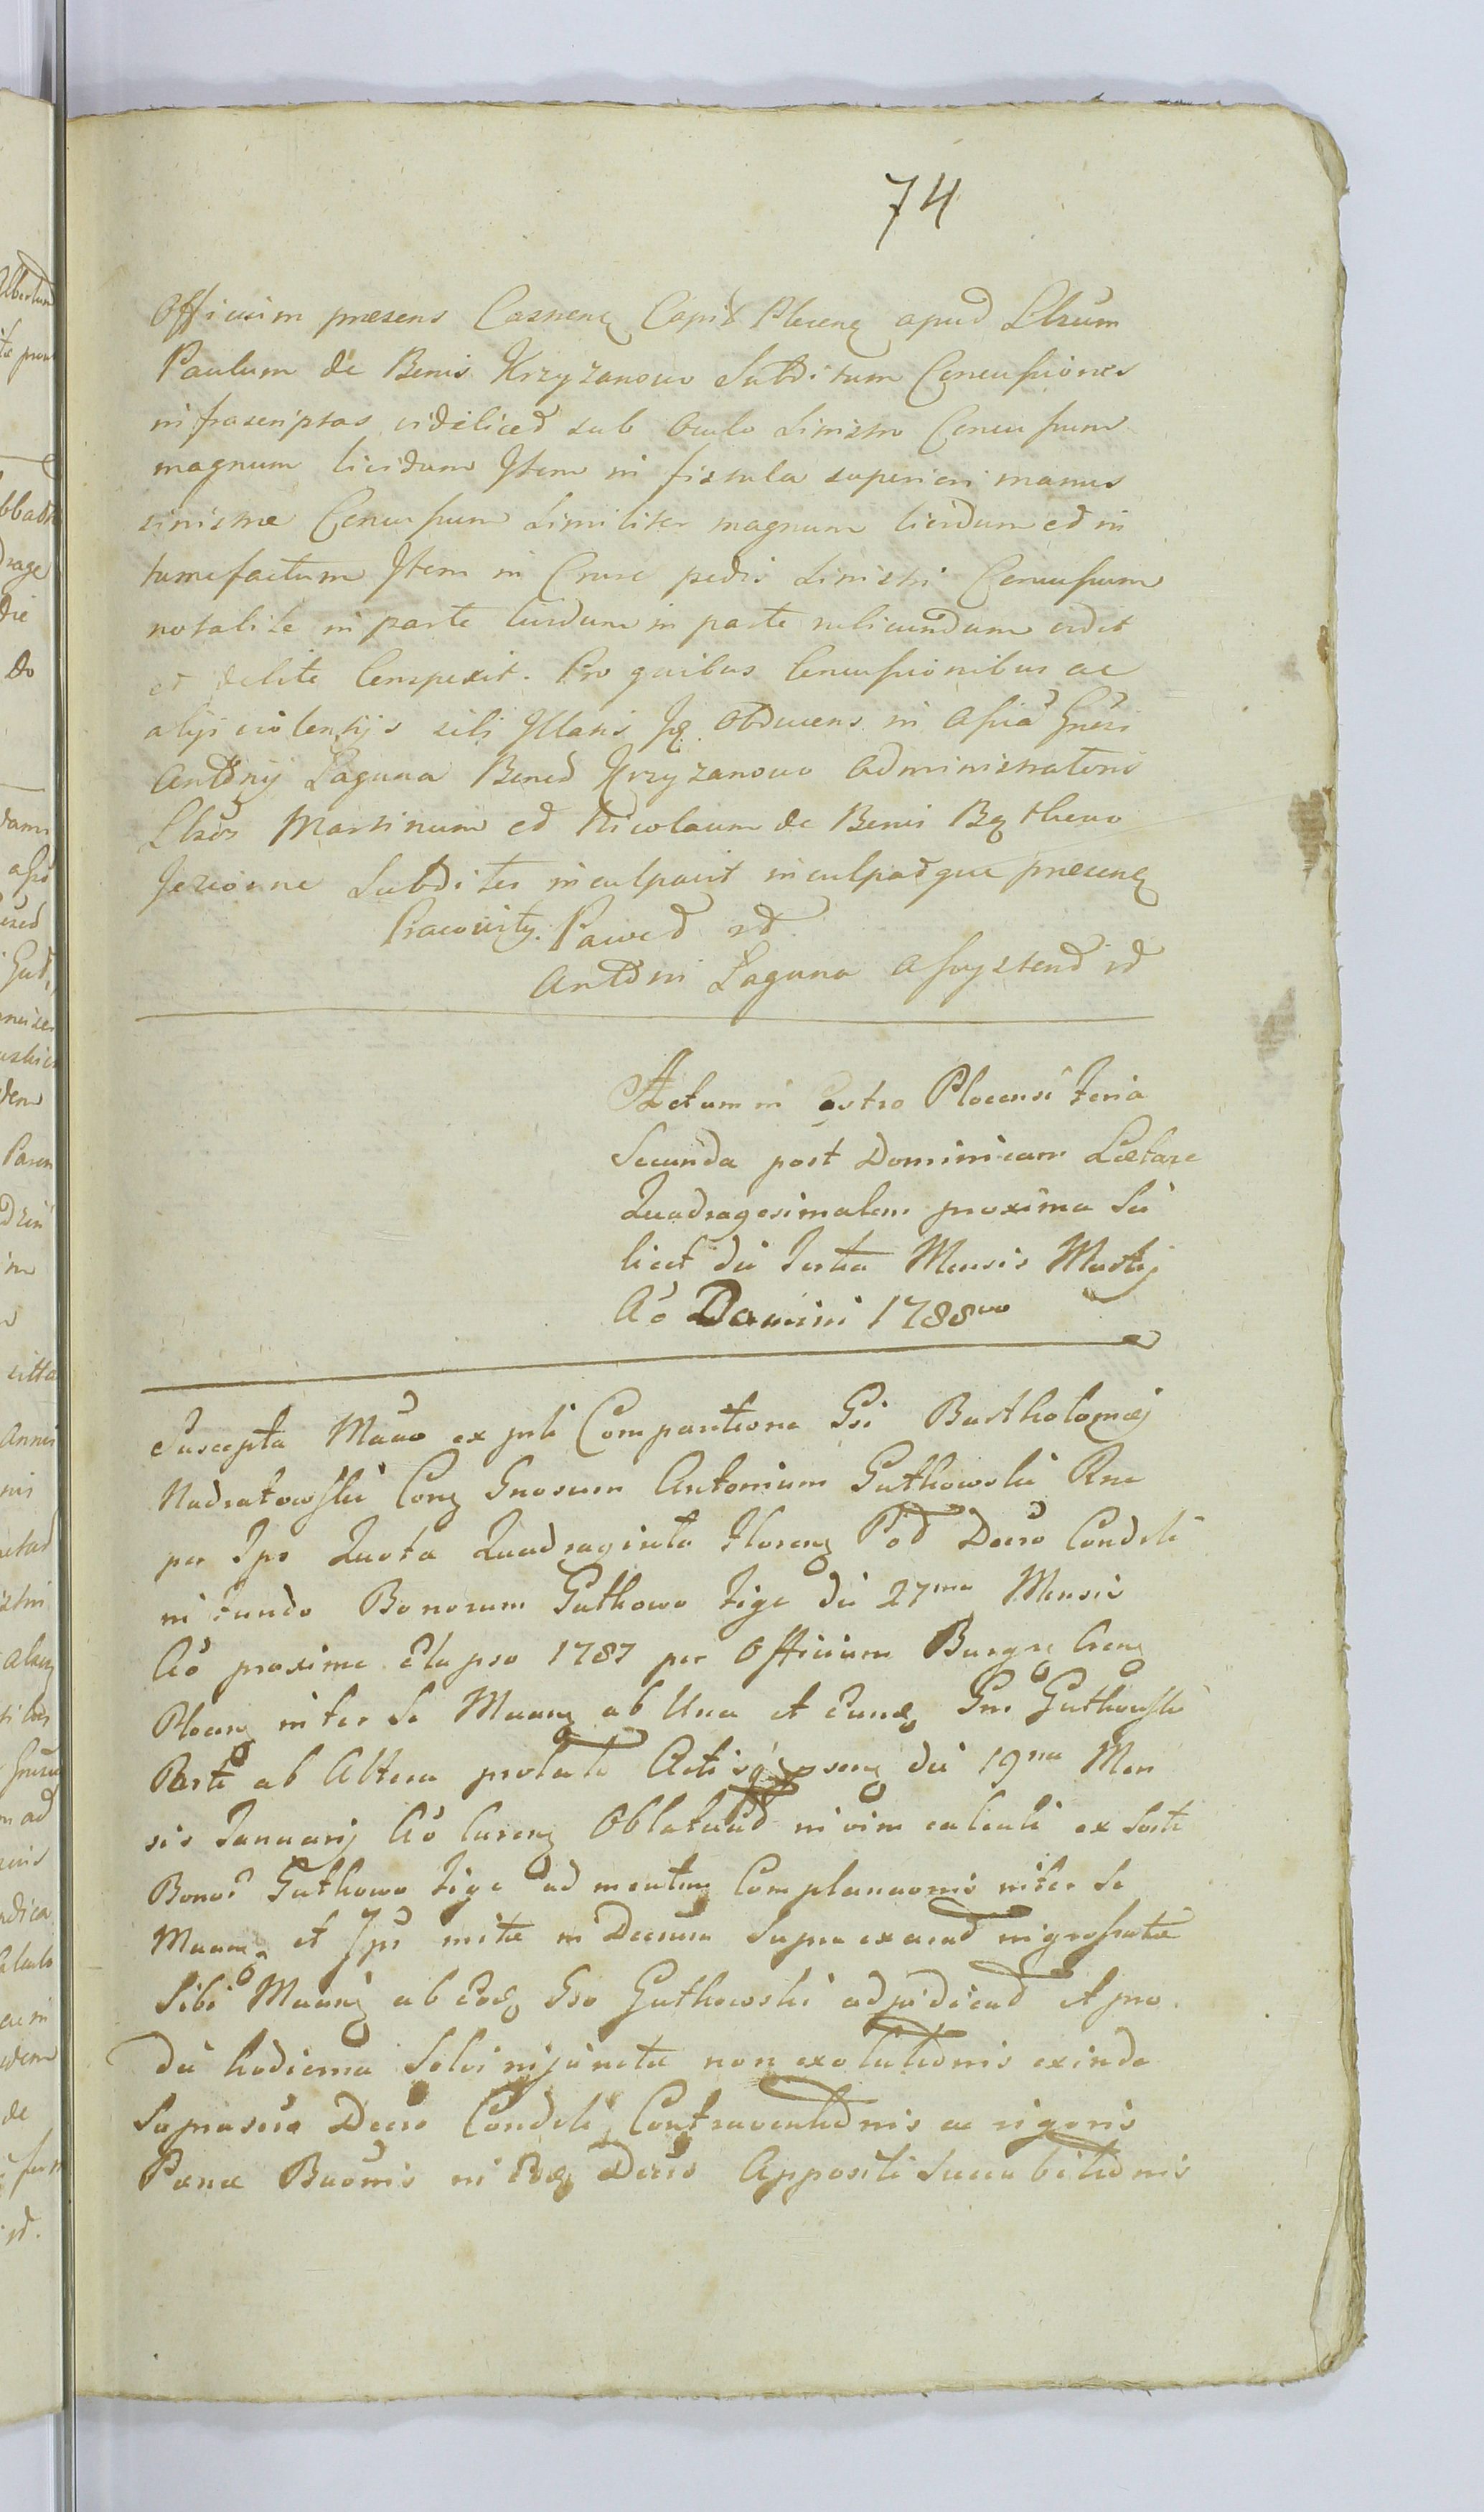 74
Officium præsens Casnenȩ Capit Plocenȩ apud Lbrum
Paulum de Bonis Krzyzanowo Subditum Concussiones
infrascriptas videliced sub Oculo sinistro Concussum
magnum lividum Item in fistula superiori manus
sinistræ Concussum Similiter magnum lividum ed in
tumefactum Item in Crure pedis Sinistri Concussum
notabile in parte lividum in parte rubicundum vidit
et debite Conspexit. Pro quibus Concussionibus ac
alijs violentijs sibi Illatis Jꝫ Obducens in Assia Gnosi
Antonij Laguna Bonod Krzyzanowo Administratoris
Lbros Martinum ed Nicolaum de Bonis
Subditos inculpavit inculpadque præsenȩ
Pracowity Paweł
Antoni Laguna Assystend

Actum in Castro Plocensi Feria
Secunda post Dominicam Lætare
Quadragesimalem proxima Sci
licet die Tertia Mensis Martij
Aō Domini 1788vo

Suscepta Manō ex pnti Comparitione Gsi Bartholomæj
Nadratowski Conȩ Gnosum Antonium Gutkowski Rne
per Ips Quota Quadraginta Florenȩ Pod Decro Condsli
in fundo Bonorum Gutkowo Fige die 27ma Mensis
Aō proxime Elapso 1787 per Officium Burgȩ Crenȩ
Plocenȩ inter Se Manenȩ ab Una et Eundȩ Gnm Gutkowski
Parte ab Altera prolato Actisqȝ psenȩ die 19na Men
sis Januarij Aō Currenȩ Oblatuad in vim calculi ex Sorte
Bonor Gutkowo Fige ad mentem Complanaonis inter Se
Manenȩ et Ips initæ in Decrum Supra exarad ingrossatæ
Sibi Manenȩ ab Eodȩ Gso Gutkowski adjudicad et pro
die hodierna Solvi injunctæ non exolutionis exinde
Suprascro Decro Condsli Contraventionis ac rigoris
Pœnæ Baonis in Eodȩ Decro Appositi Succubitionis